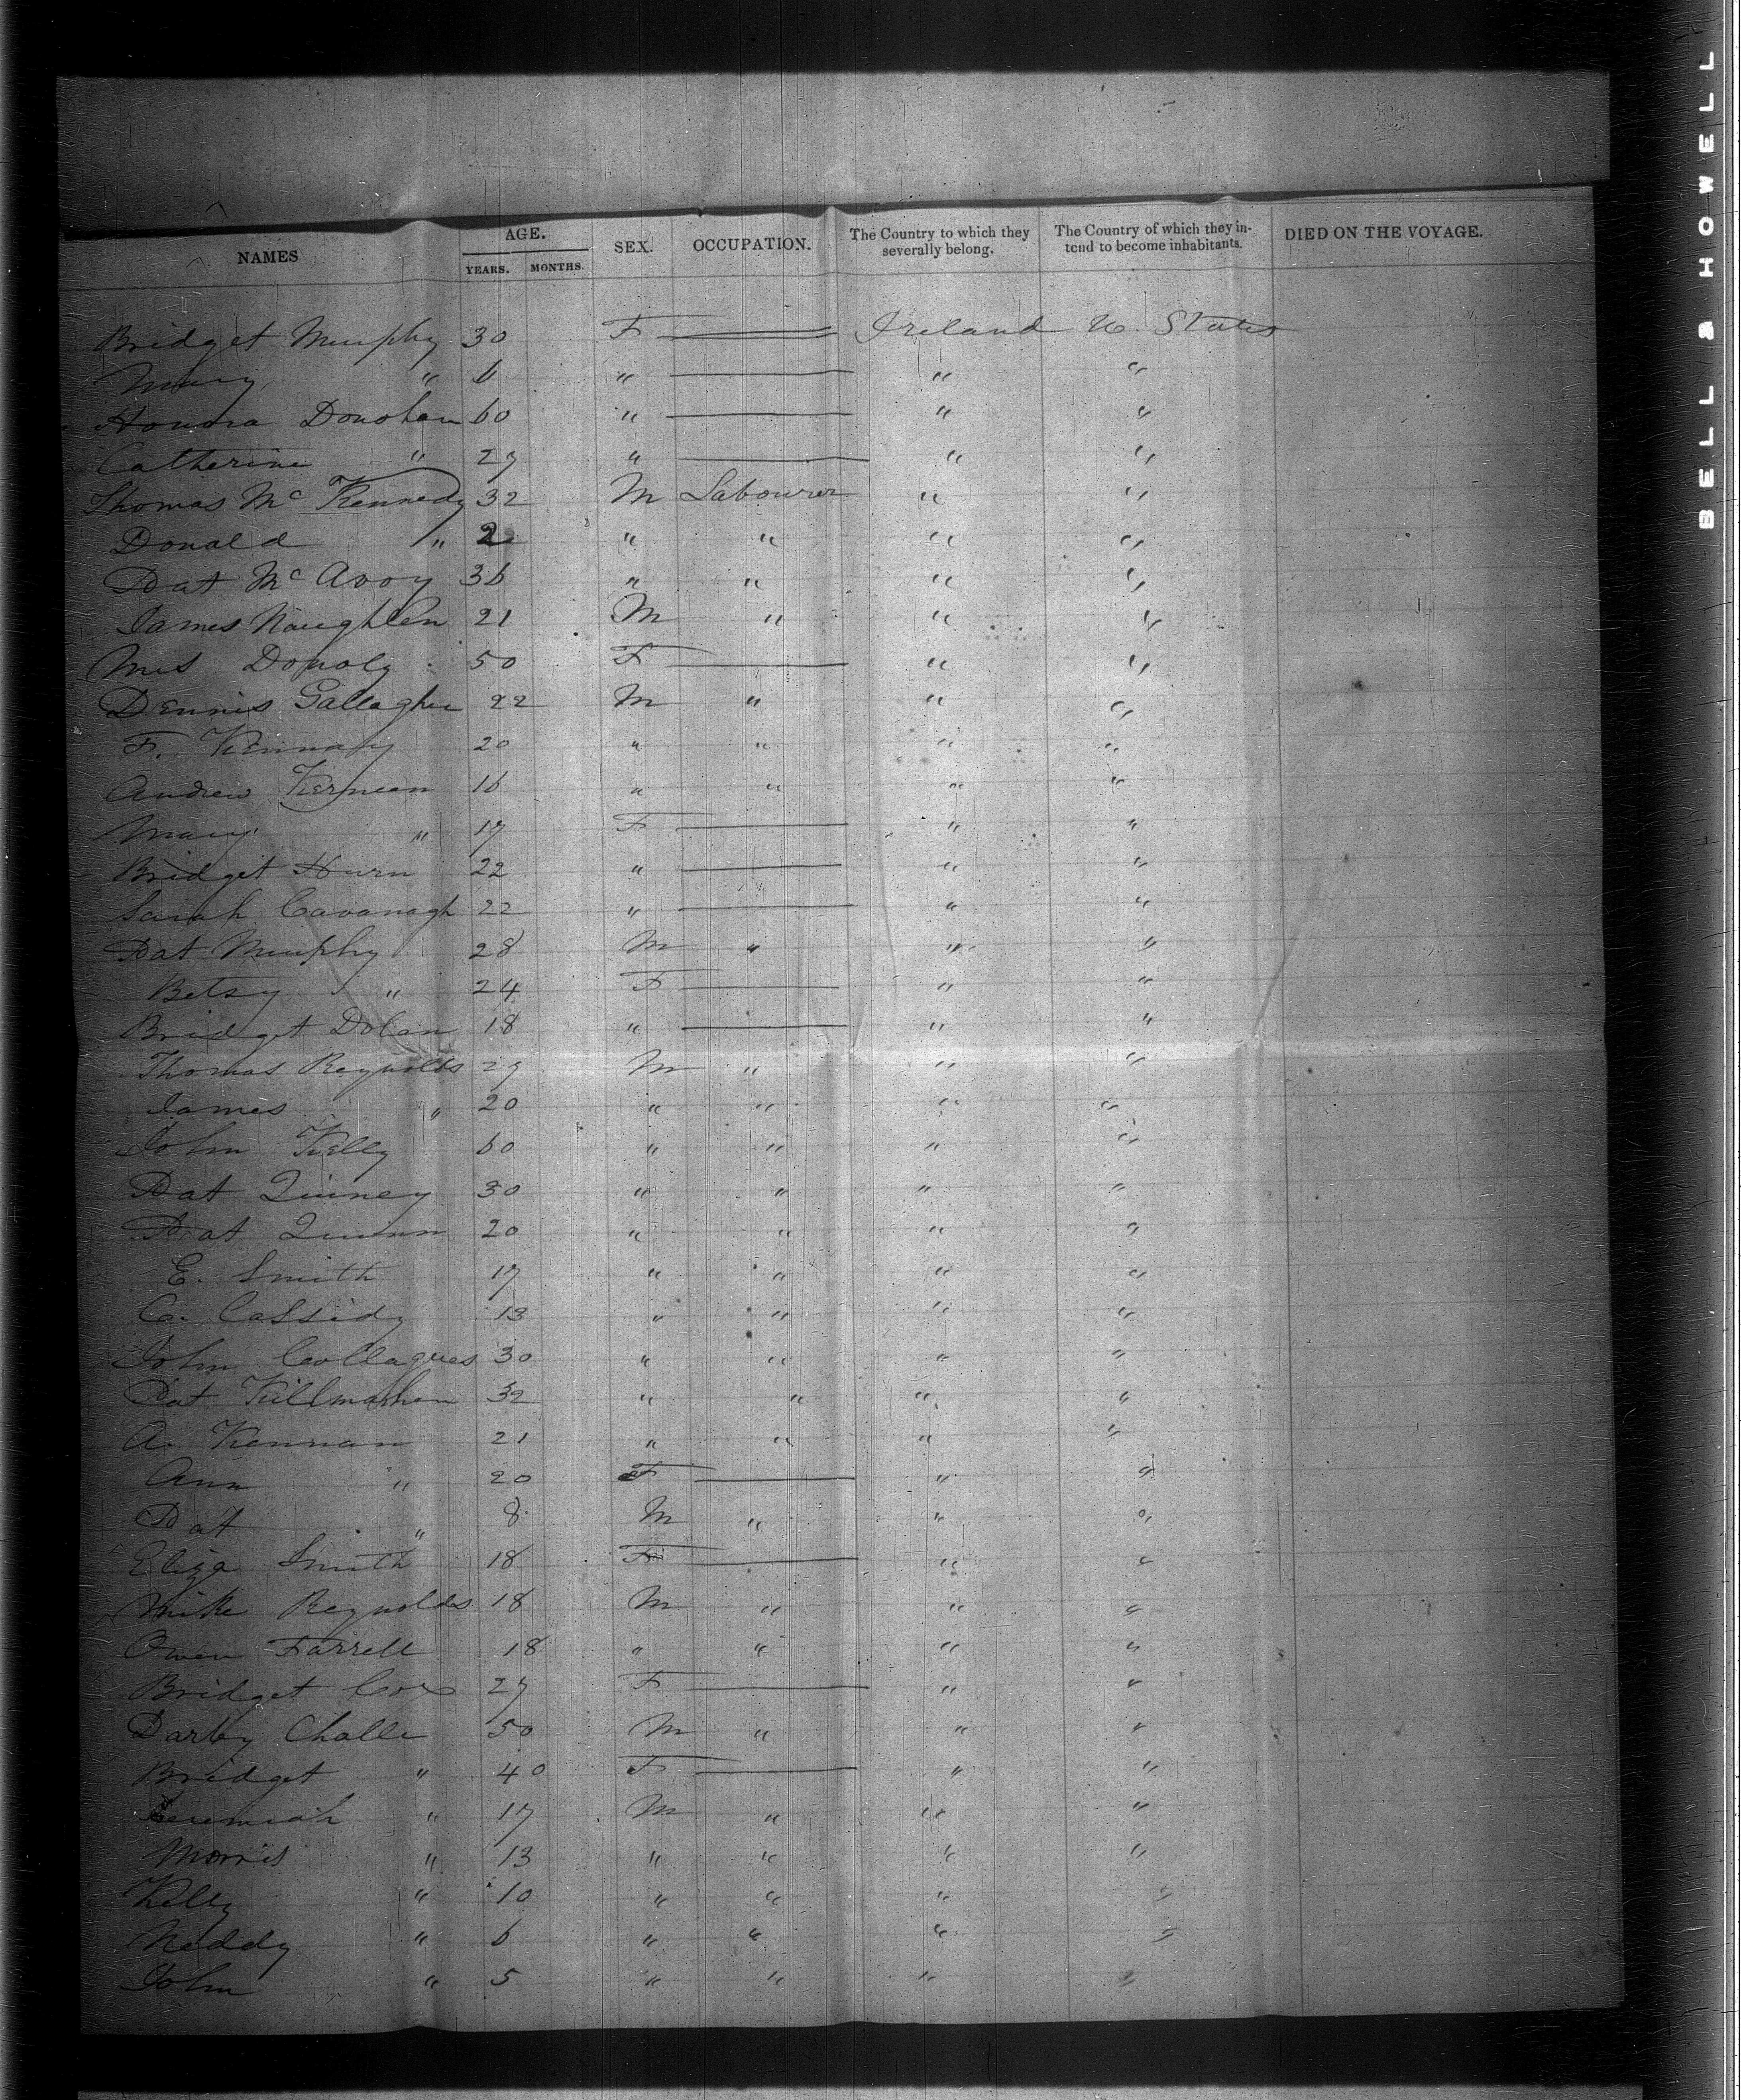 NAMES AGE. SEX. OCCUPATION. The Country to which they severally belong. The Country of which they intend to become inhabitants. DIED ON THE VOYAGE.
YEARS. MONTHS.
Bridget Murphy 30 F Ireland U. States
Mary " 6 " " "
Honora Donohou 60 " " "
Catherine " 27 " " "
Thomas Mc Kennedy 32 M Labourer " "
Donald " 2 " " " "
Pat Mc Avoy 36 " " " "
James Naughten 21 M " " "
Mrs 50 F " "
Dennis Gallagher 22 M " " "
F. 20 " " " "
Andrew Kernean 16 " " " "
Mary " 17 F " "
Bridget Hurn 22 " " "
Sarah Cavanagh 22 " " "
Pat Murphy 28 M " " "
Betsy " 24 F " "
Bridget Dolan 18 " " "
Thomas Reynolds 27 M " " "
James " 20 " " " "
John Kelly 60 " " " "
Pat Quiney 30 " " " "
Pat Quinn 20 " " " "
E. Smith 17 " " " "
C. Cassidy 13 " " " "
John 30 " " " "
Pat 32 " " " "
A. Kennan 21 " " " "
Ann " 20 F " "
Pat " 8 M " " "
Eliza Smith 18 F " "
Mike Reynolds 18 M " " "
Owen Farrell 18 " " " "
Bridget Cox 27 F " "
Darby Challe 50 M " " "
Bridget " 40 F " "
Jeremiah " 17 M " " "
Morris " 13 " " " "
Kelly " 10 " " " "
Neddy " 6 " " " "
John " 5 " " " "
BELL & HOWELL